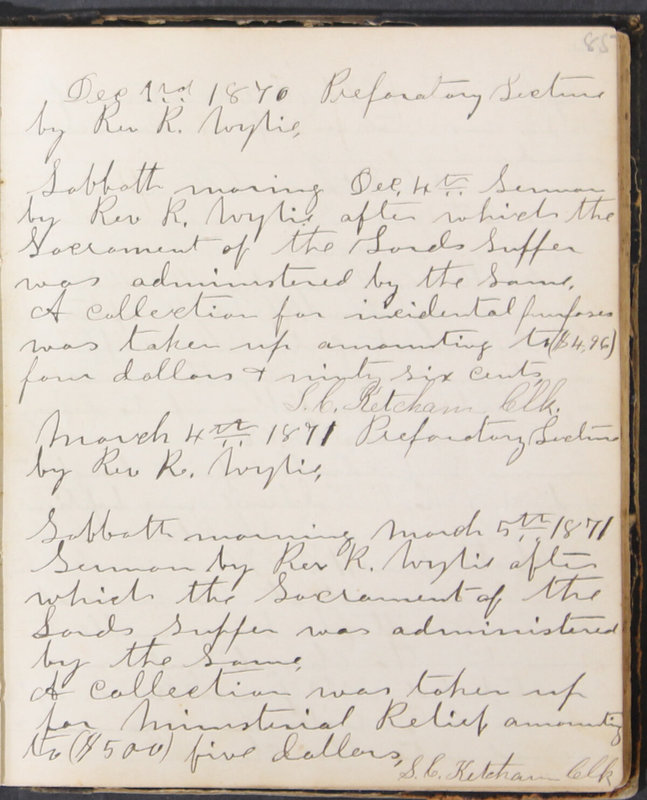 85
Dec 3rd 1870 Preforatory Lecture
by Rev R. Wylie,
Sabbath moring Dec, 4th Sermon
by Rev R. Wylie after which the
Sacrament of the Lords Supper
was administered by the Same,
A collection for incidental purposes
was taken up amounting to ($4,96)
four dollars & ninty six cents,
S. C. Ketcham Clk.
March 4th 1871 Preforatory Lecture
by Rev R. Wylie,
Sabbath morning March 5th 1871
Sermon by Rev R. Wylie after
which the Sacrament of the
Lords Supper was administered
by the Same,
A collection was taken up
for Ministerial Relief amounting
to ($500) five dollars,
S. C. Ketcham Clk